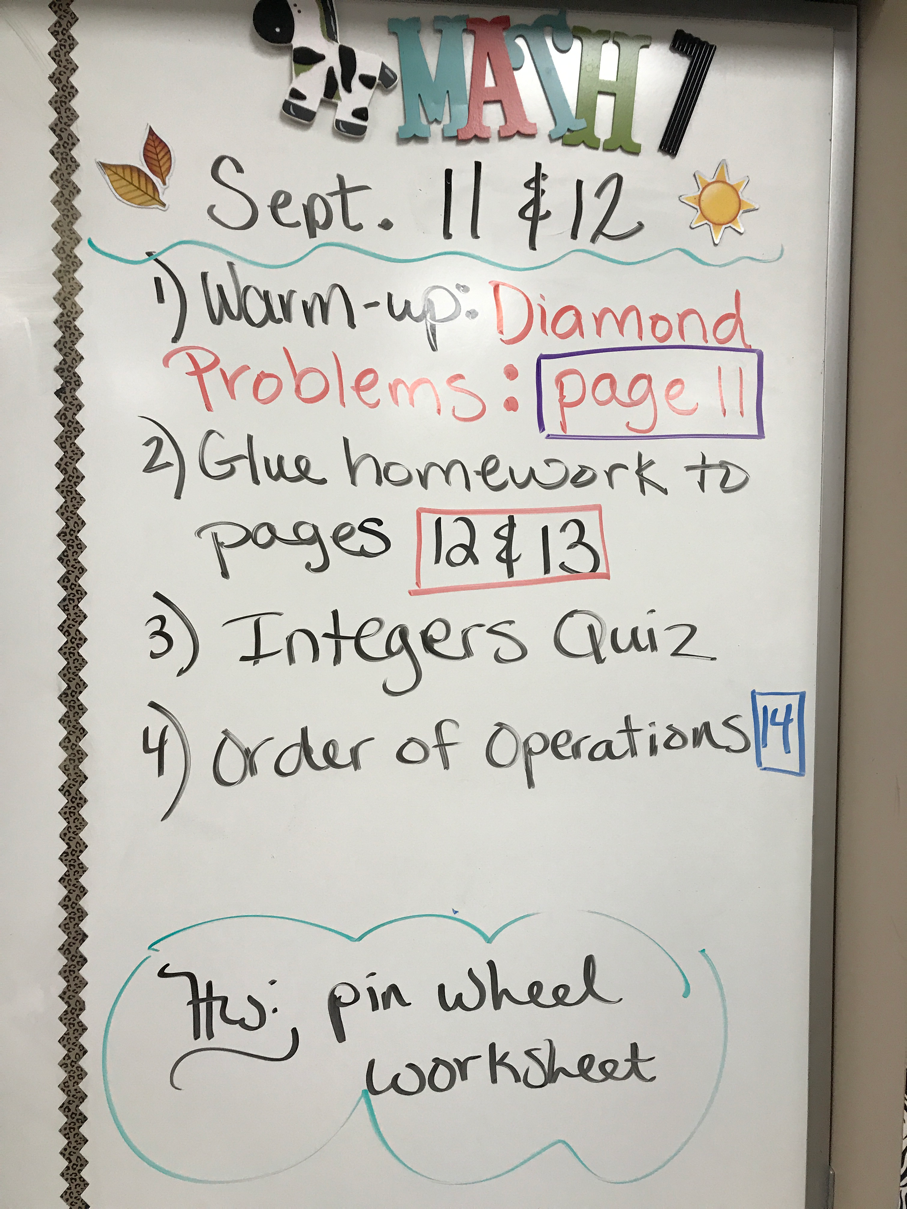 MATH 7
Sept. 11 & 12
1) Warm-up: Diamond
Problems: page 11
2) Glue homework to
pages 12 & 13
3) Integers Quiz
4) Order of Operations 14
Hw: pin wheel
worksheet